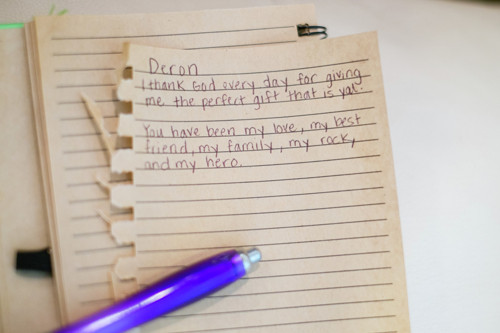 Deron
I thank God every day for giving
me the perfect gift that is you.
You have been my love, my best
friend, my family, my rock,
and my hero.